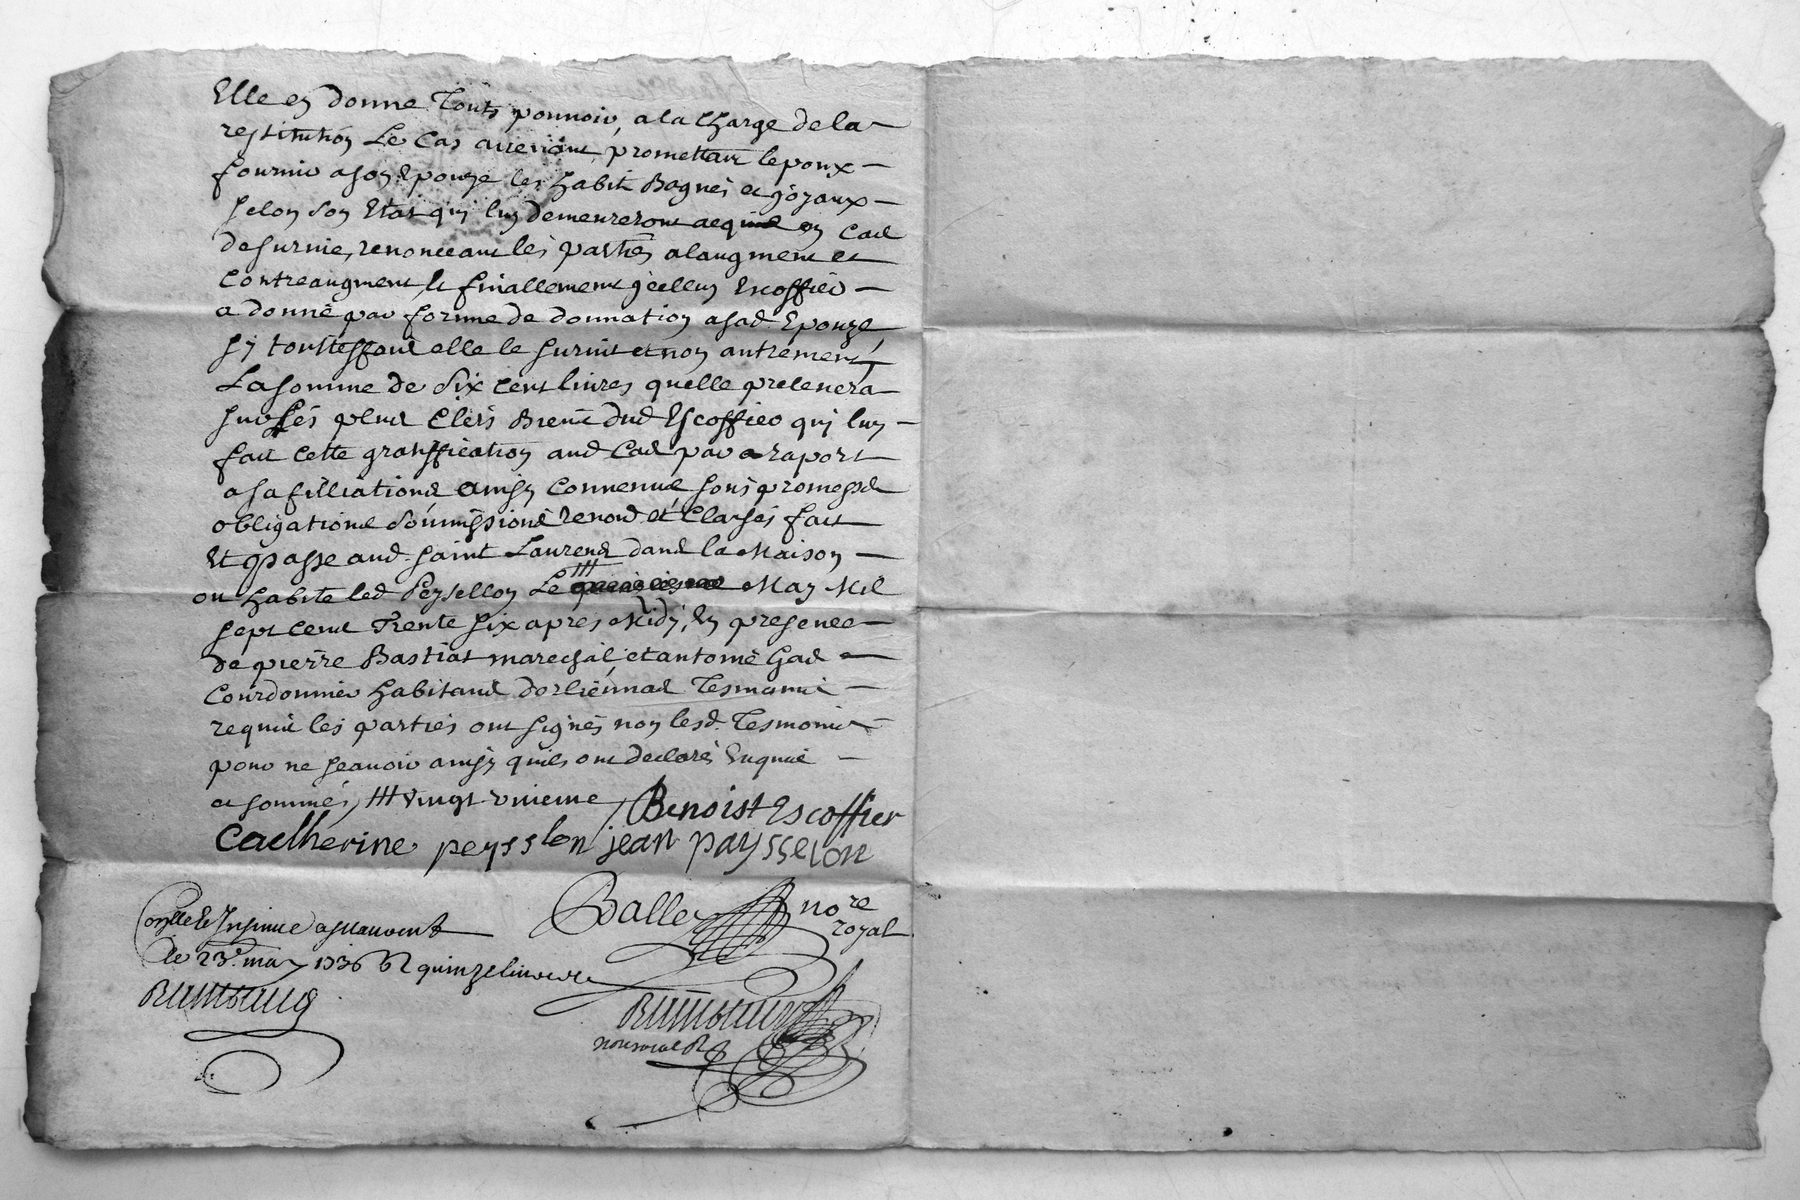 Elle en donne Touts pouuoir, a la Charge de la
restitution Le Cas aireuant, promettant lepoux
fournir a son Epouze les habit Bagues et joyaux
selon son Etat quy luy demeureront acquis en Cas
de suruie, renonceant les parties a laugment et
Contreaugment, et finallement jcelluy Escoffier
a donné par forme de donnation a sad Epouze,
sy touttesfois elle le suruit et non autrement
La somme de Six Cent liures quelle preleuera
sur ses plus Clers Biens dud Escoffier quy luy
fait Cette gratiffication aud Cas par raport
a sa filliations ainsy Conuenus, sous promesses
obligations Soumissions renon et Clauses fait
Et passé aud Saint Laurens dans la Maison
ou habite led Peysselloy Le ## May Mil
sept Cent Trente Six apres Midy, En presence
de pierre Bastiat marechal, et antoine Gad
Courdonnier habitans dorliennas Tesmoins
requis les parties ont signés non lesd. Tesmoins
pour ne sçauoir ainsy quils ont declaré Enquis
et sommés, ## vingt-unieme / Benoist Escoffier
Catherine peysslon jean paysselon
Balley no re royal
Con.lle et Insinué a st Laurent
le 23e. may 1736 R quinze liures